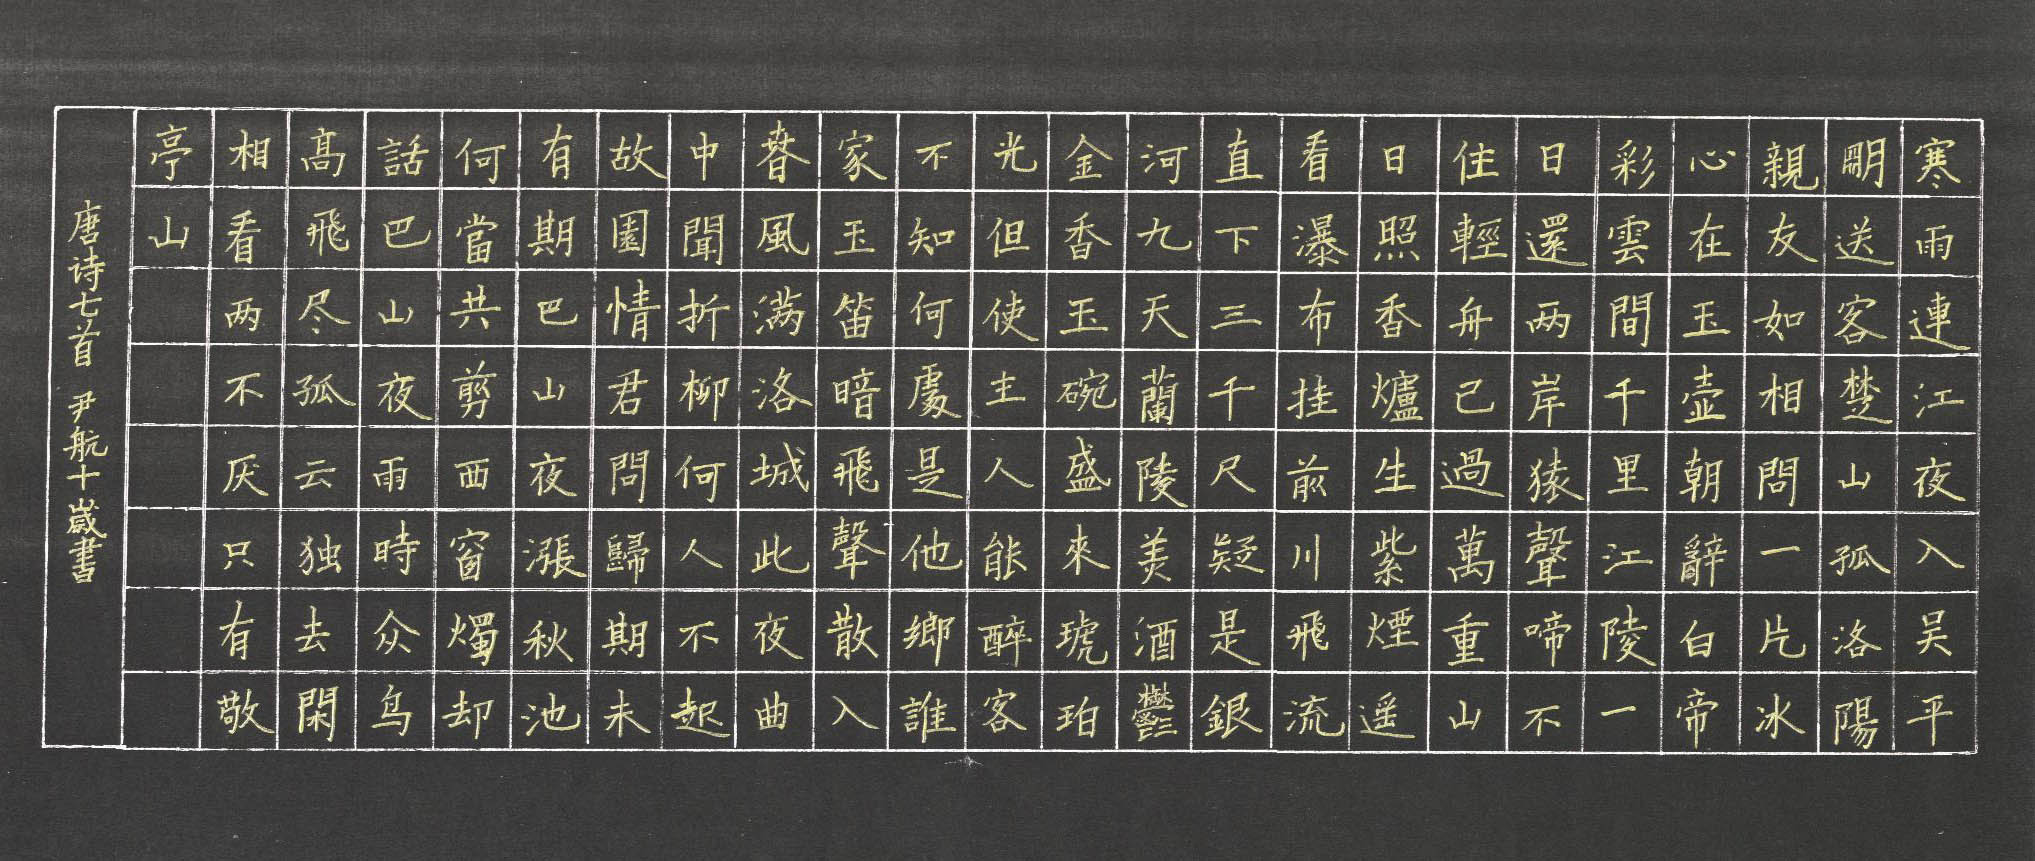 寒雨連江夜入吴平
明送客楚山孤洛陽
親友如相問一片冰
心在玉壺朝辭白帝
彩雲間千里江陵一
日還两岸猿聲啼不
住輕舟已過萬重山
日照香爐生紫煙遥
看瀑布挂前川飛流
直下三千尺疑是銀
河九天蘭陵美酒鬱
金香玉碗盛來琥珀
光但使主人能醉客
不知何處是他鄉誰
家玉笛暗飛聲散入
春風满洛城此夜曲
中聞折柳何人不起
故園情君問歸期未
有期巴山夜雨漲秋池
何當共剪西窗燭却
話巴山夜雨時众鸟
高飛尽孤云独去閑
相看两不厌只有敬
亭山
唐诗七首 尹航十歲書